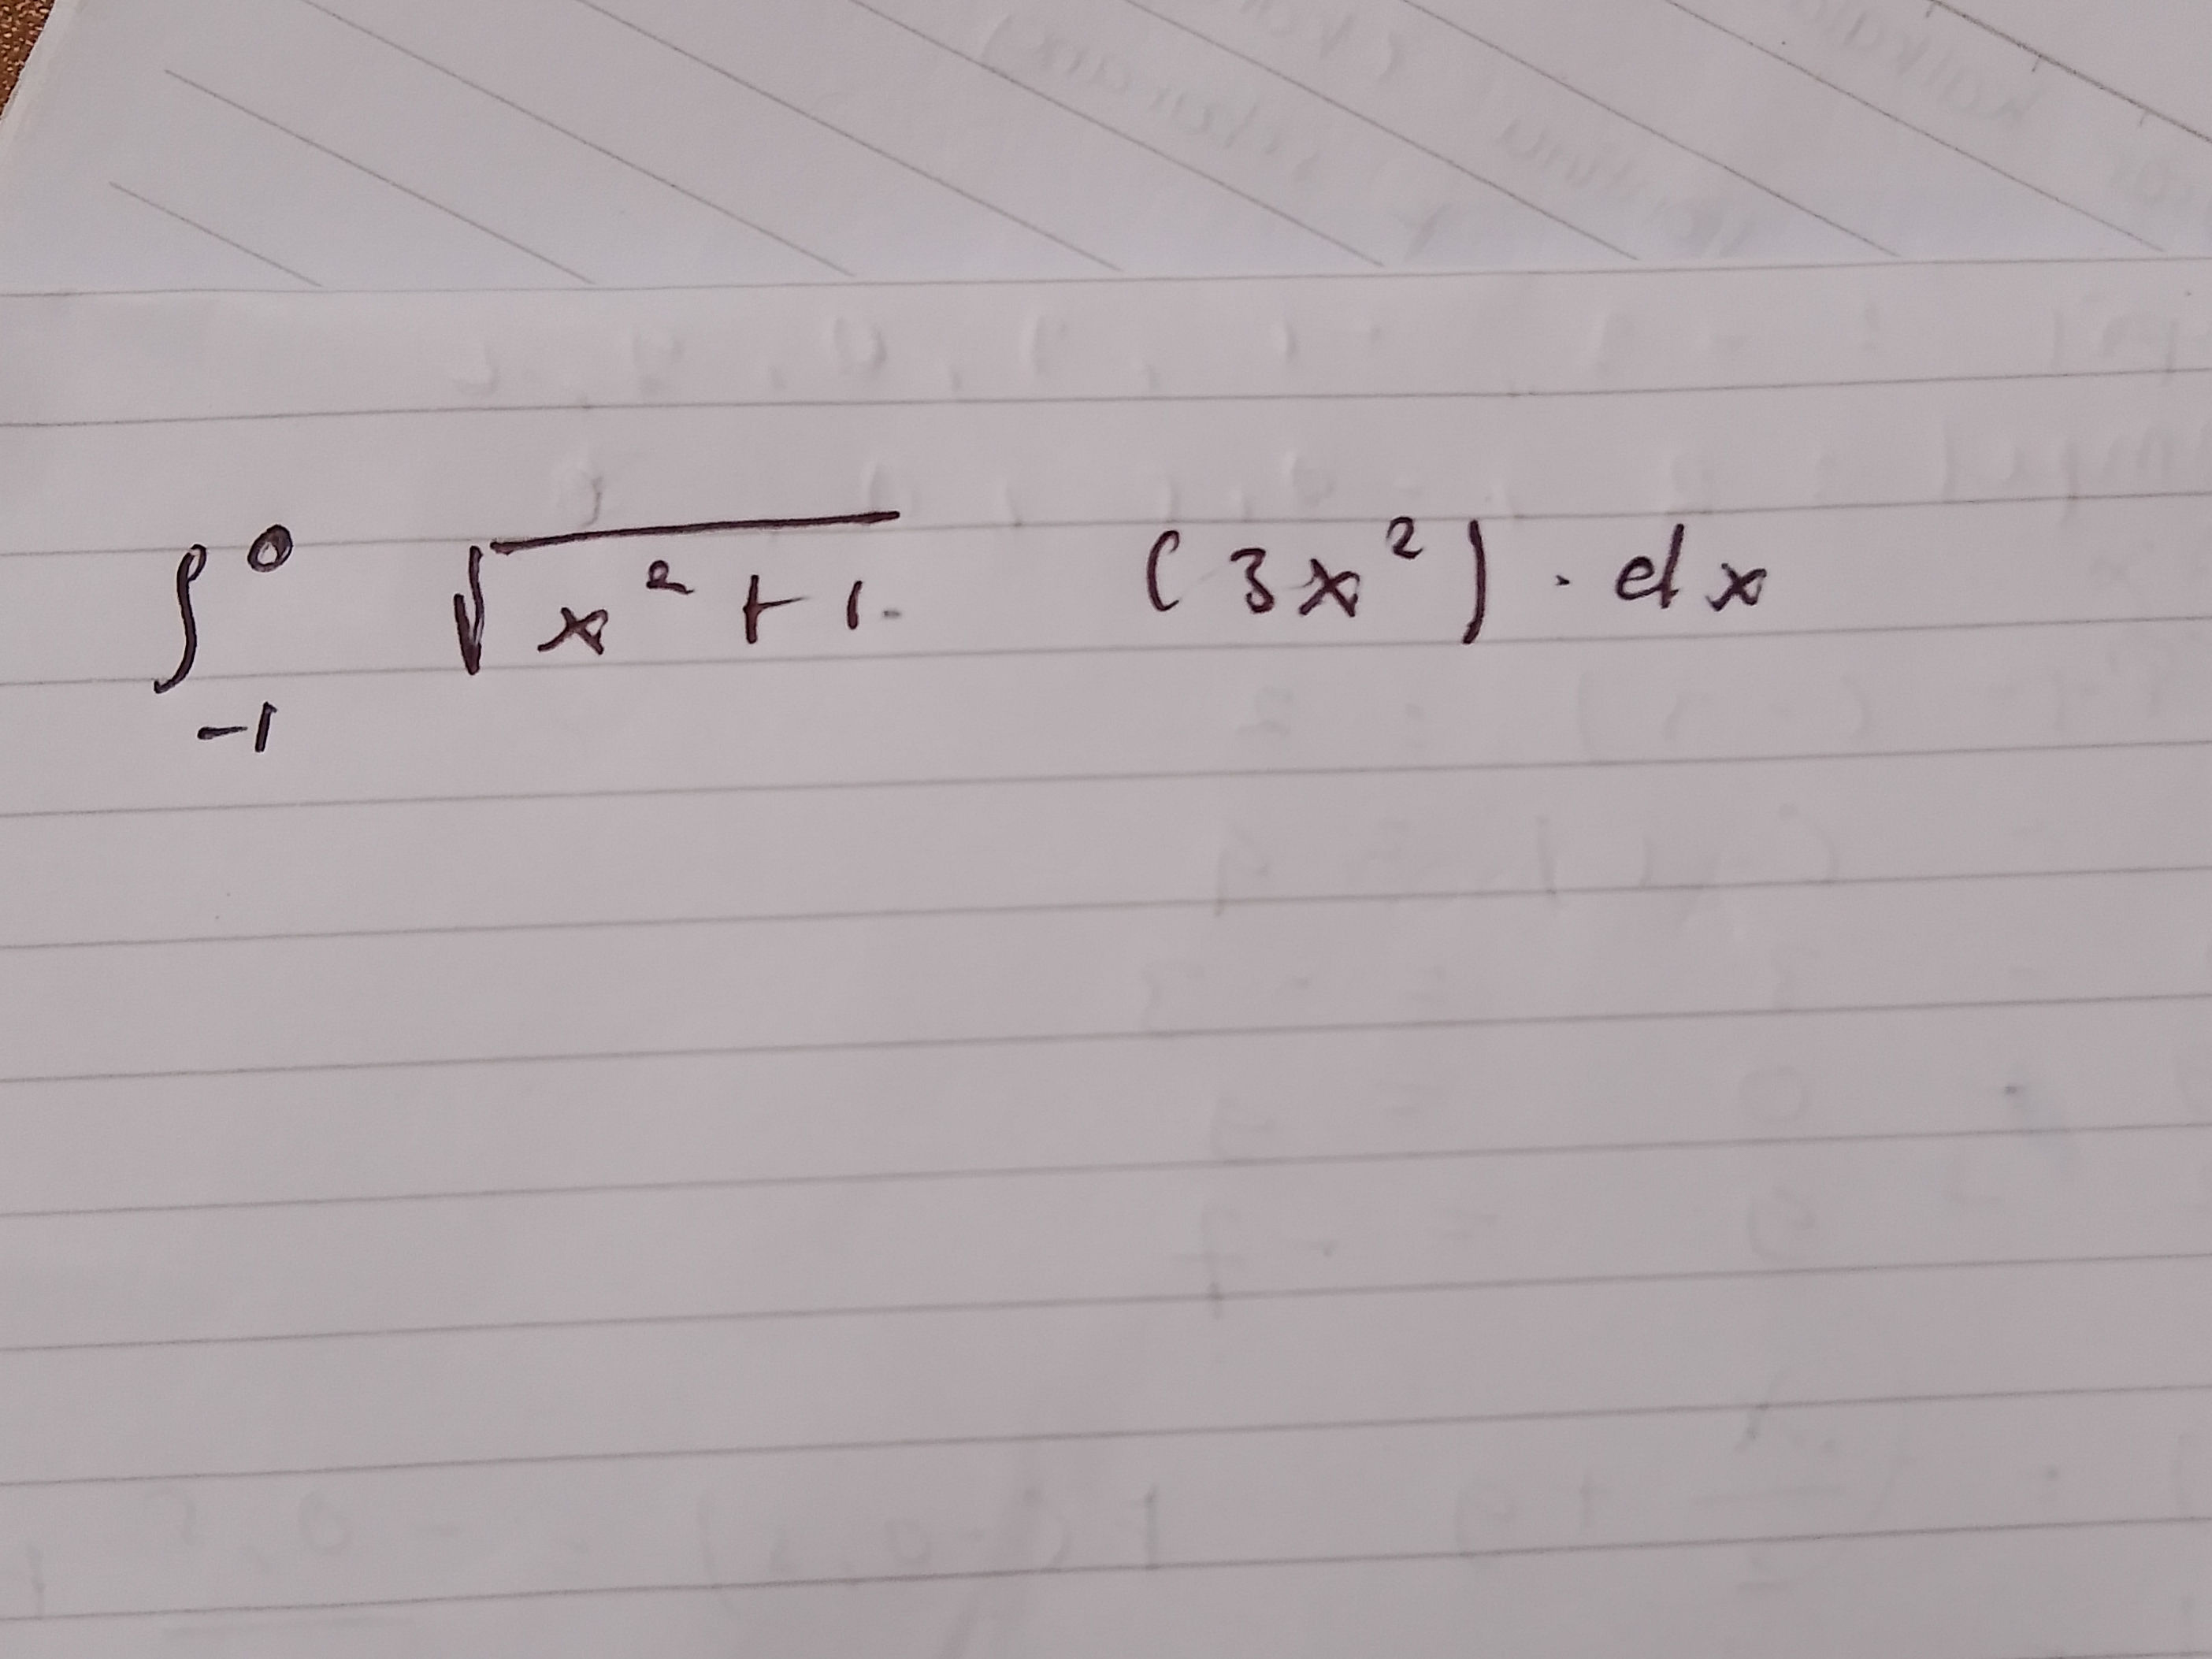 ∫₋₁⁰ √(x² + 1.) (3x²) · dx